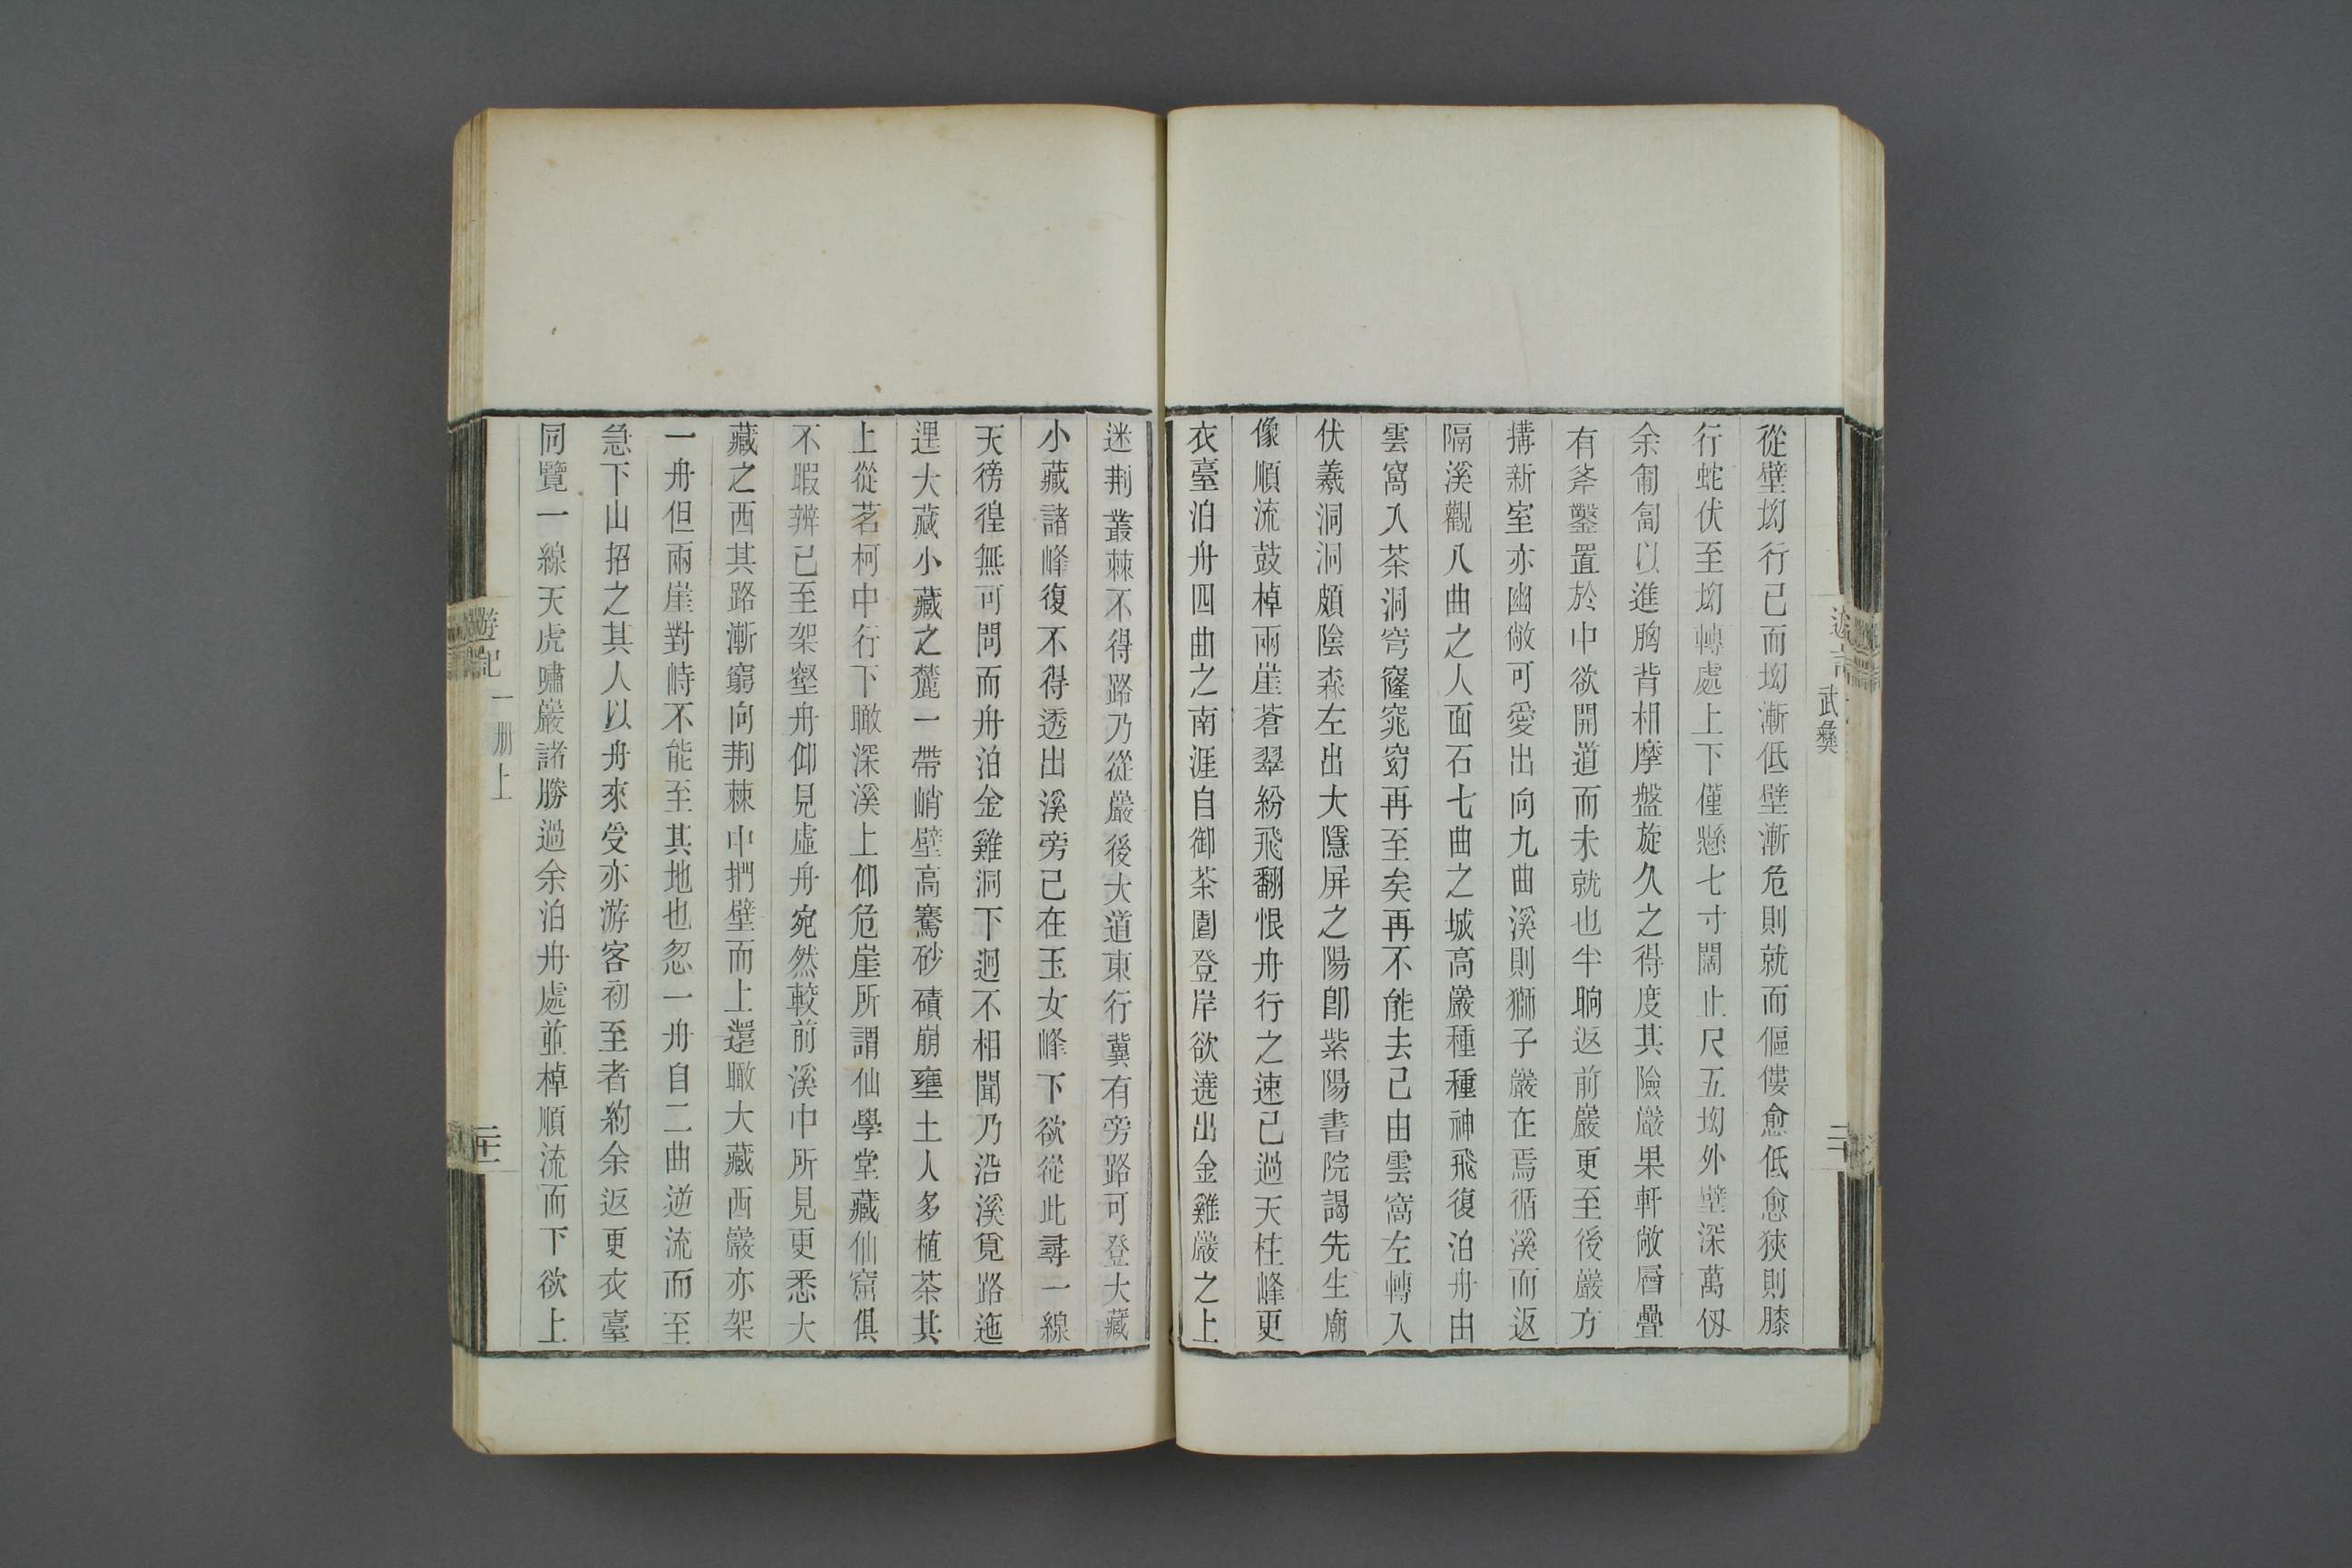 武彝
從壁坳行已而坳漸低壁漸危則就而傴僂愈低愈狹則膝
行蛇伏至坳轉處上下僅懸七寸闊止尺五坳外壁深萬仭
余匍匐以進胸背相摩盤旋久之得度其險巖果軒敞層疊
有斧鑿置於中欲開道而未就也半晌返前巖更至後巖方
搆新室亦幽敞可愛出向九曲溪則獅子巖在焉循溪而返
隔溪觀八曲之人面石七曲之城高巖種種神飛復泊舟由
雲窩入茶洞穹窿窕窈再至矣再不能去已由雲窩左轉入
伏羲洞洞頗陰森左出大隱屏之陽卽紫陽書院謁先生廟
像順流鼓棹兩崖蒼翠紛飛翻恨舟行之速已過天柱峰更
衣臺泊舟四曲之南涯自御茶園登岸欲遶出金雞巖之上
迷荆叢棘不得路乃從巖後大道東行冀有旁路可登大藏
小藏諸峰復不得透出溪旁已在玉女峰下欲從此尋一線
天徬徨無可問而舟泊金雞洞下迥不相聞乃沿溪覓路迤
邐大藏小藏之麓一帶峭壁高騫砂磧崩壅土人多植茶其
上從茗柯中行下瞰深溪上仰危崖所謂仙學堂藏仙窟俱
不暇辨已至架壑舟仰見虛舟宛然較前溪中所見更悉大
藏之西其路漸窮向荆棘中捫壁而上還瞰大藏西巖亦架
一舟但兩崖對峙不能至其地也忽一舟自二曲逆流而至
急下山招之其人以舟來受亦游客初至者約余返更衣臺
同覽一線天虎嘯巖諸勝過余泊舟處並棹順流而下欲上
游記
一册上